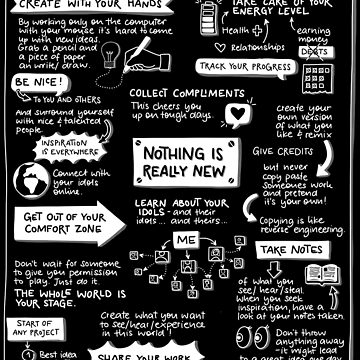 CREATE WITH YOUR HANDS
By working only on the computer
with your mouse it's hard to come
up with new ideas.
Grab a pencil and a
piece of paper
an write/ draw.
TAKE CARE OF YOUR
ENERGY LEVEL
Health +
♥ Relationships
earning
money
DEBTS
TRACK YOUR PROGRESS
BE NICE!
→ TO YOU AND OTHERS
And surround yourself
with nice & talented
people.
COLLECT COMPLIMENTS
This cheers you
up on tough days.
create your
own version
of what you
like & remix
INSPIRATION
IS EVERYWHERE
Connect with
your idols
online.
NOTHING IS
REALLY NEW
GIVE CREDITS
but never
copy paste
someones work
and pretend
it's your own!
GET OUT OF YOUR
COMFORT ZONE
LEARN ABOUT YOUR
IDOLS - and their
idols ... and theirs...
Copying is like
reverse engineering.
ME
TAKE NOTES
Don't wait for someone
to give you permission
to play. Just do it.
THE WHOLE WORLD IS
YOUR STAGE.
of what you
see/hear/steal.
When you seek
inspiration, have a
look at your notes taken.
START OF
ANY PROJECT
1 Best idea
Create what you want to
see/hear/experience
in this world!
SHARE YOUR WORK
Don't throw
anything away
- it might lead
to a great idea one day